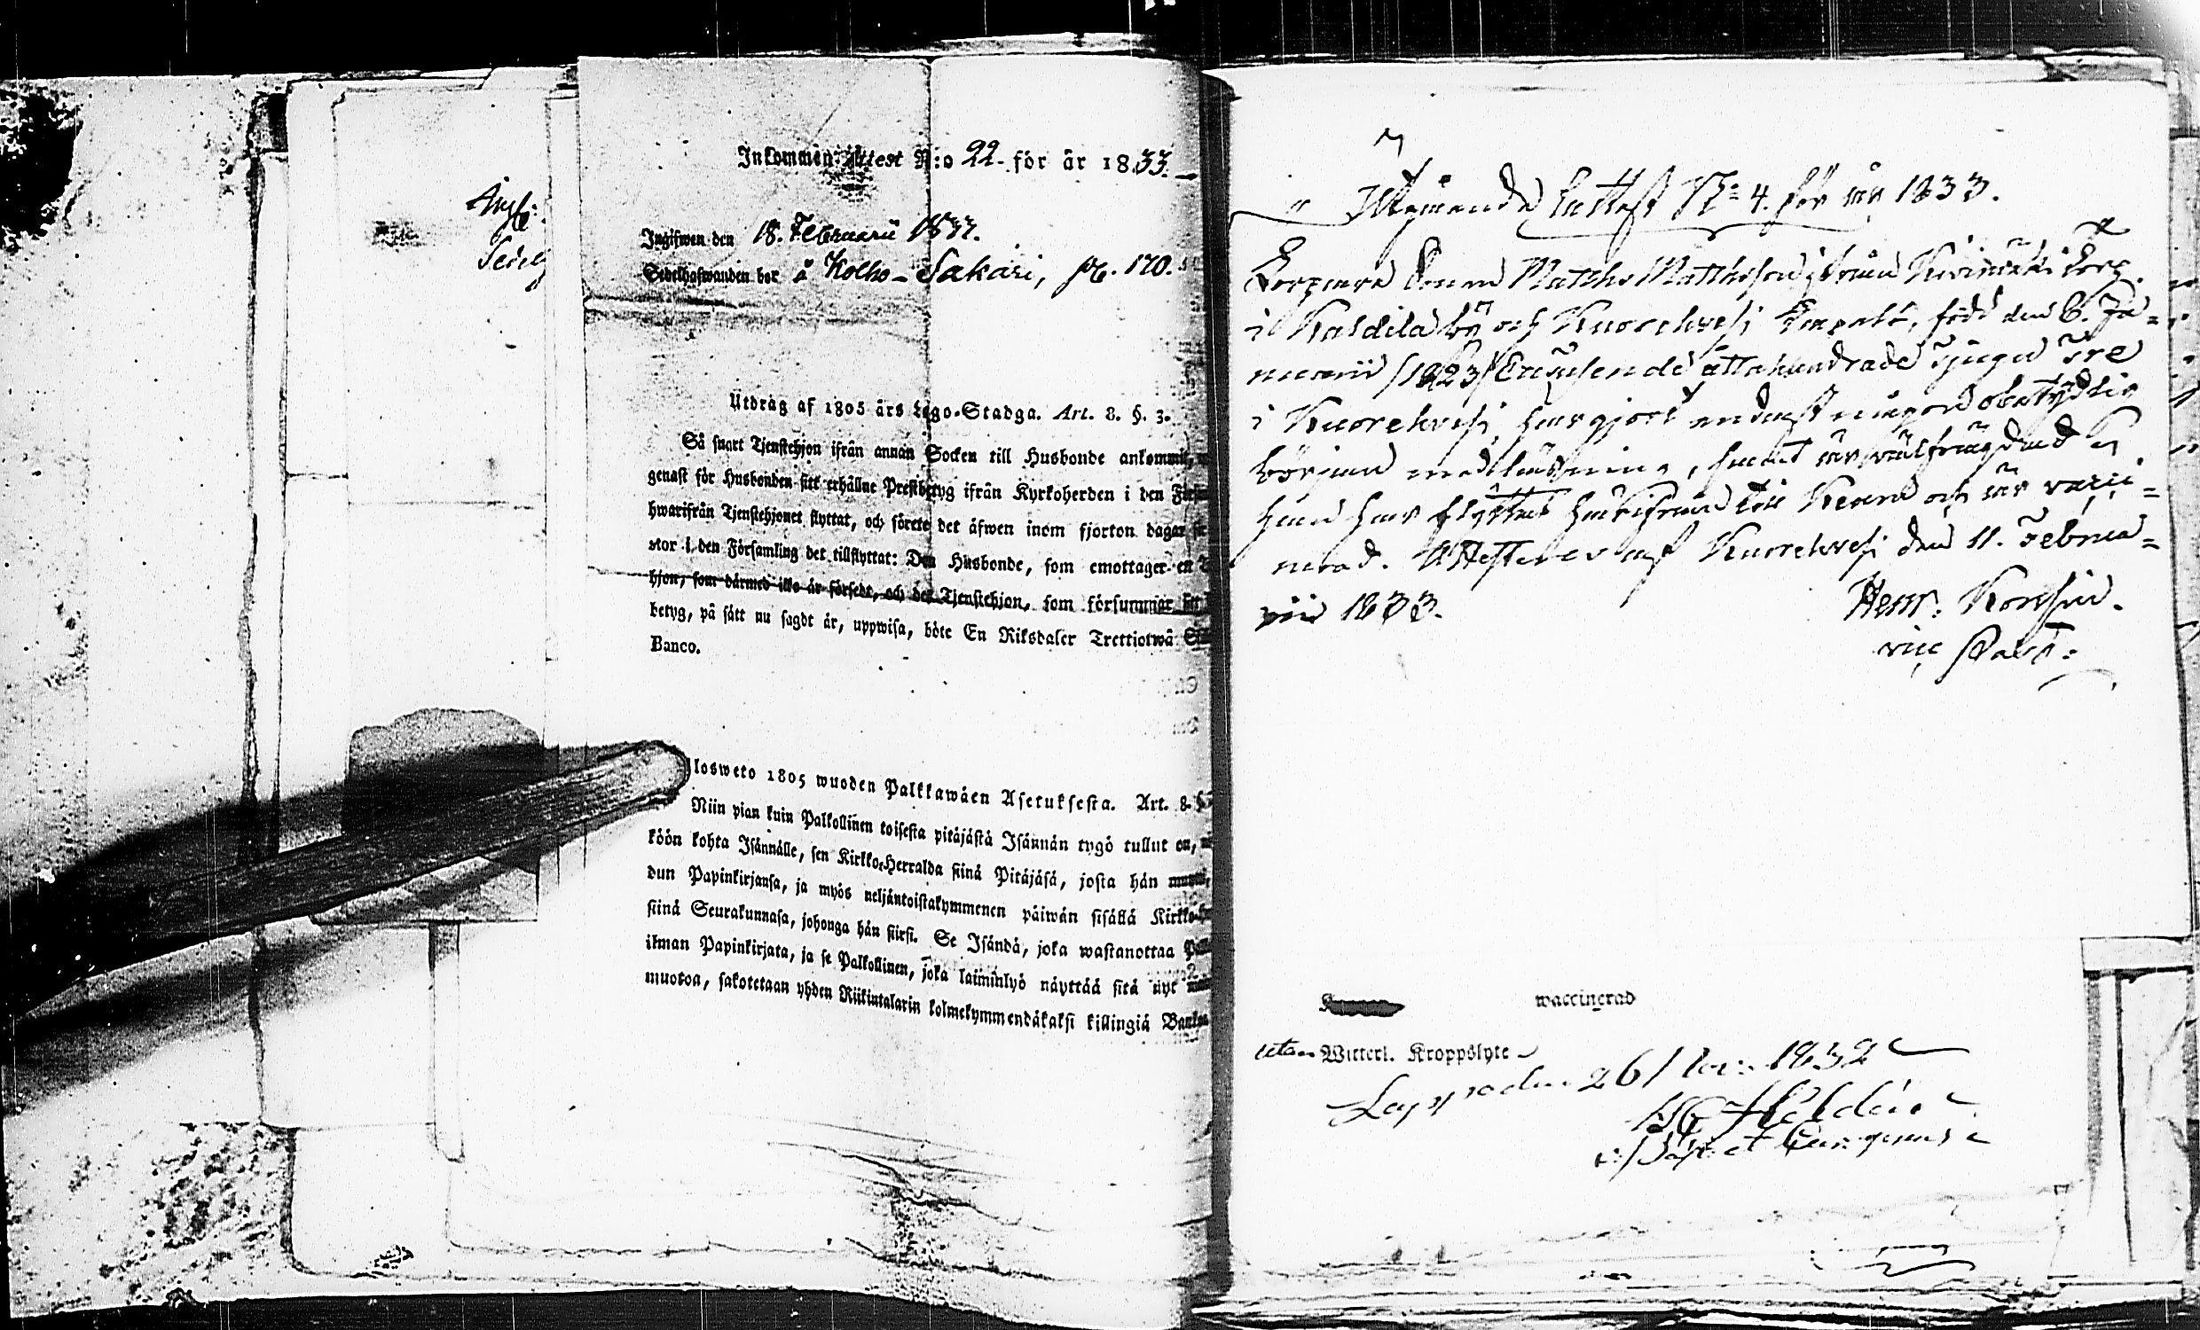 Inkommen Attest N:o 22. för år 1833.
Ingifwen den 18. Februarii 1833.
Sedelhafwanden bor å Kolho-Sakari, p. 170.
Utdrag af 1805 års Lego-Stadga. Art. 8. §. 3.
Så snart Tjenstehjon ifrån annan Socken till Husbonde ankommit,
genast för Husbonden sitt erhållne Prestbetyg ifrån Kyrkoherden i den
hwarifrån Tjenstehjonet flyttat, och förete det åfwen inom fjorton dagar
stor i den Församling det tillflyttat: Den Husbonde, som emottager en
hjon, som dårmed icke år försedt, och det Tjenstehjon, som försummar
betyg, på sått nu sagdt år, uppwisa, böte En Riksdaler Trettiotwå
Banco.
losweto 1805 wuoden Palkkawåen Asetuksesta. Art. 8.
Niin pian kuin Palkollinen toisesta pitåjåstå Isånnån tygö tullut on,
köön kohta Isånnålle, sen Kirkko-Herralda siinå Pitåjåså, josta hån
dun Papinkirjansa, ja myös neljåntoistakymmenen påiwån sisållå
siinå Seurakunnasa, johonga hån siirsi. Se Isåndå, joka wastanottaa
ilman Papinkirjata, ja se Palkollinen, joka laiminlyö nåyttåå sitå nyt
muotoa, sakotetaan yhden Riikintalarin kolmekymmendåkaksi killingiå
Utgående Attest No 4. för år 1833.
Torpare Sonen Matths Mattsson ifrån Kivimäki torp
i Kaldila by och Kuorehvesi Capell, född den 6. Ja=
nuarii /1823/ Ettusende åttahundrade tjugu tre
i Kuorehvesi, har gjort endast någon obetydlig
början med läsning, samt är välfrägdad
hann har flyttat härifrån till Keuru och är vacci=
nerad. Attesterar af Kuorehvesi den 11. Februa=
rii 1833.
Henr.
vice Past:
waccinerad
utan Witterl. Kroppslyte
1832